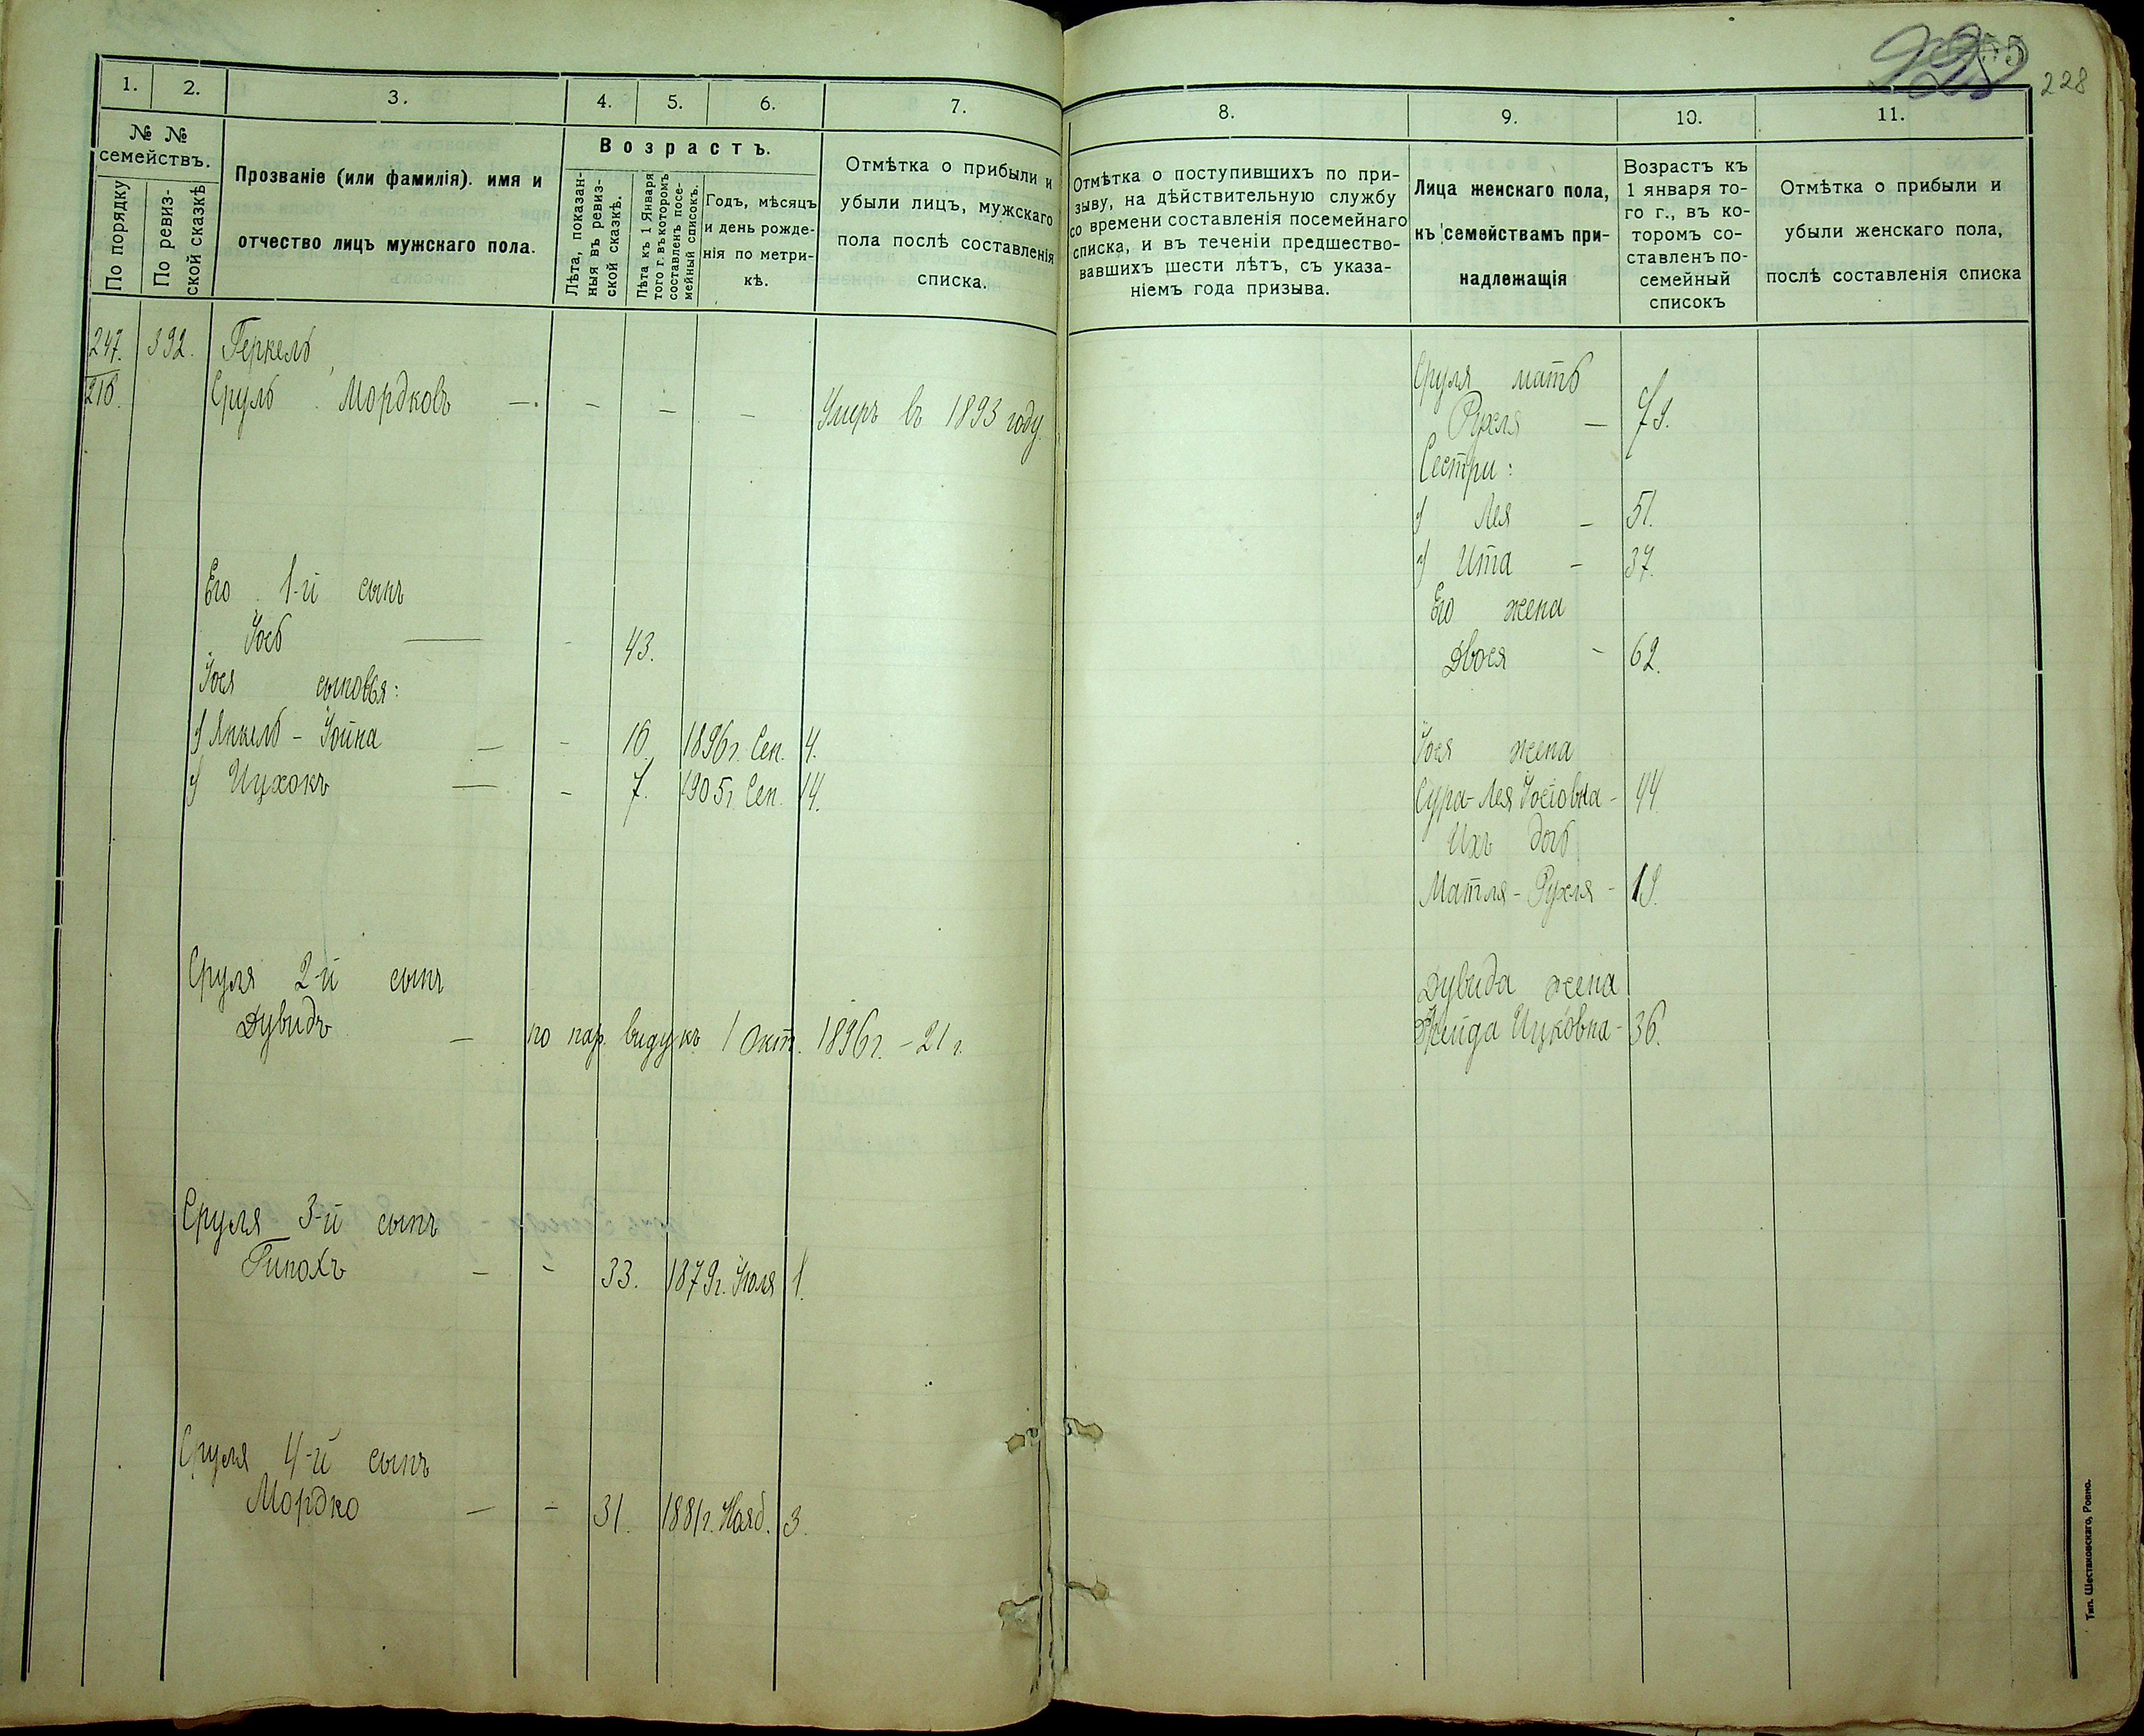 228
1. 2. 3. 4. 5. 6. 7.
№ №
семействъ.
По порядку
По ревиз-
ской сказкѣ
Прозваніе (или фамилія). имя и
отчество лицъ мужскаго пола.
Возрастъ.
Лѣта, показан-
ныя въ ревиз-
ской сказкѣ.
Лѣта къ 1 Января
того г. въ которомъ
составленъ посе-
мейный списокъ.
Годъ, мѣсяцъ
и день рожде-
нія по метри-
кѣ.
Отмѣтка о прибыли и
убыли лицъ, мужскаго
пола послѣ составленія
списка.
247. 392. Геркель
216. Сруль Мордковъ — - - - Умеръ въ 1893 году.
Его 1-й сынъ
Іось — - 43.
Іося сыновья:
1) Янкель-Іойна — - 16. 1896 г. Сен. 4.
2) Ицхокъ — - 7. 1905 г. Сен. 14.
Сруля 2-й сынъ
Дувидъ — по пар. виду къ 1 Окт. 1896 г. - 21 г.
Сруля 3-й сынъ
— - 33. 1879 г. Іюля 1.
Сруля 4-й сынъ
Мордко — - 31. 1881 г. Нояб. 3.
8. 9. 10. 11.
Отмѣтка о поступившихъ по при-
зыву, на дѣйствительную службу
со времени составленія посемейнаго
списка, и въ теченіи предшество-
вавшихъ шести лѣтъ, съ указа-
ніемъ года призыва.
Лица женскаго пола,
къ семействамъ при-
надлежащія
Возрастъ къ
1 января то-
го г., въ ко-
торомъ со-
ставленъ по-
семейный
списокъ
Отмѣтка о прибыли и
убыли женскаго пола,
послѣ составленія списка
Сруля мать
Рухля — 79.
Сестри:
1) Лея - 51.
2) Ита - 37.
Его жена
Двося - 62.
Іося жена
Сура-Лея Іосіовна - 44.
Ихъ дочь
Матля-Рухля - 19.
Дувида жена
Ицковна - 36.
Тип. Шестаковскаго, Ровно.